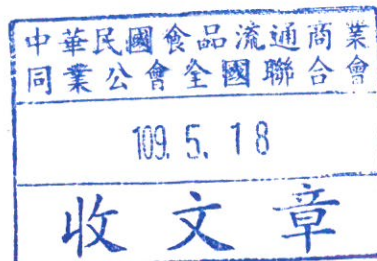 中華民國食品流通商業
同業公會全國聯合會
109. 5. 18
收文章